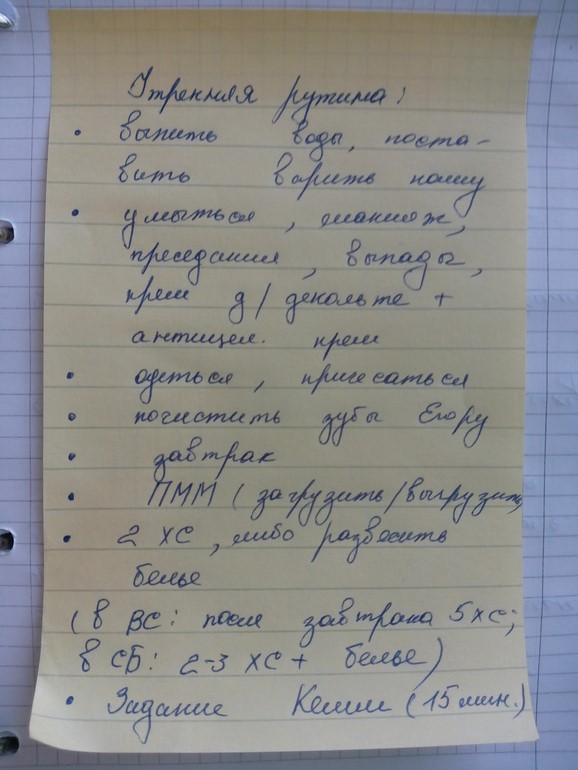 Утренняя рутина:
• выпить воды, поста-
вить варить кашу
• умыться, макияж,
приседания, выпады,
крем д/декольте +
антицел. крем
• одеться, причесаться
• почистить зубы Егору
• завтрак
• ПММ (загрузить/выгрузить
• 2 ХС, либо развесить
белье
(в ВС: после завтрака 5ХС;
в СБ: 2-3 ХС + белье)
• Задание Келли (15 мин.)